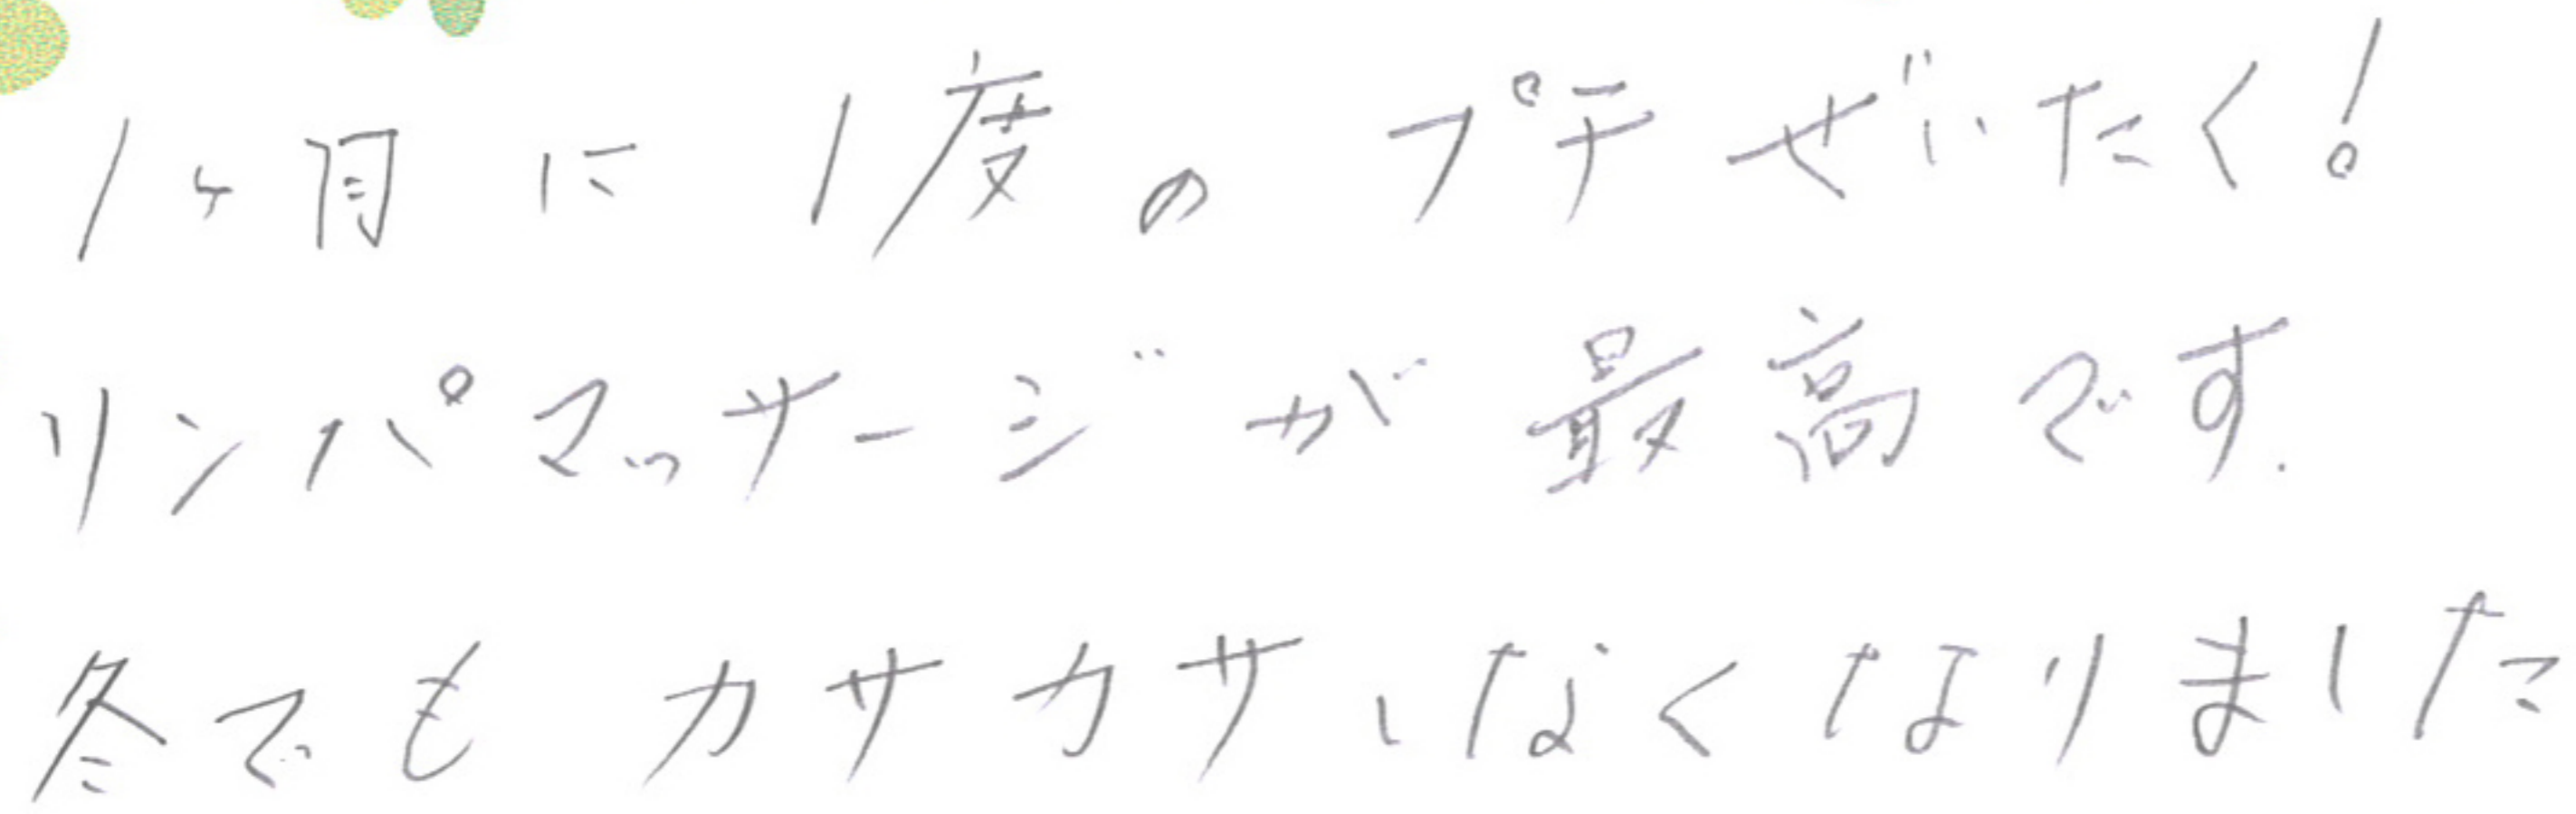 1ヶ月に1度のプチぜいたく!
リンパマッサージが最高です.
冬でもカサカサしなくなりました